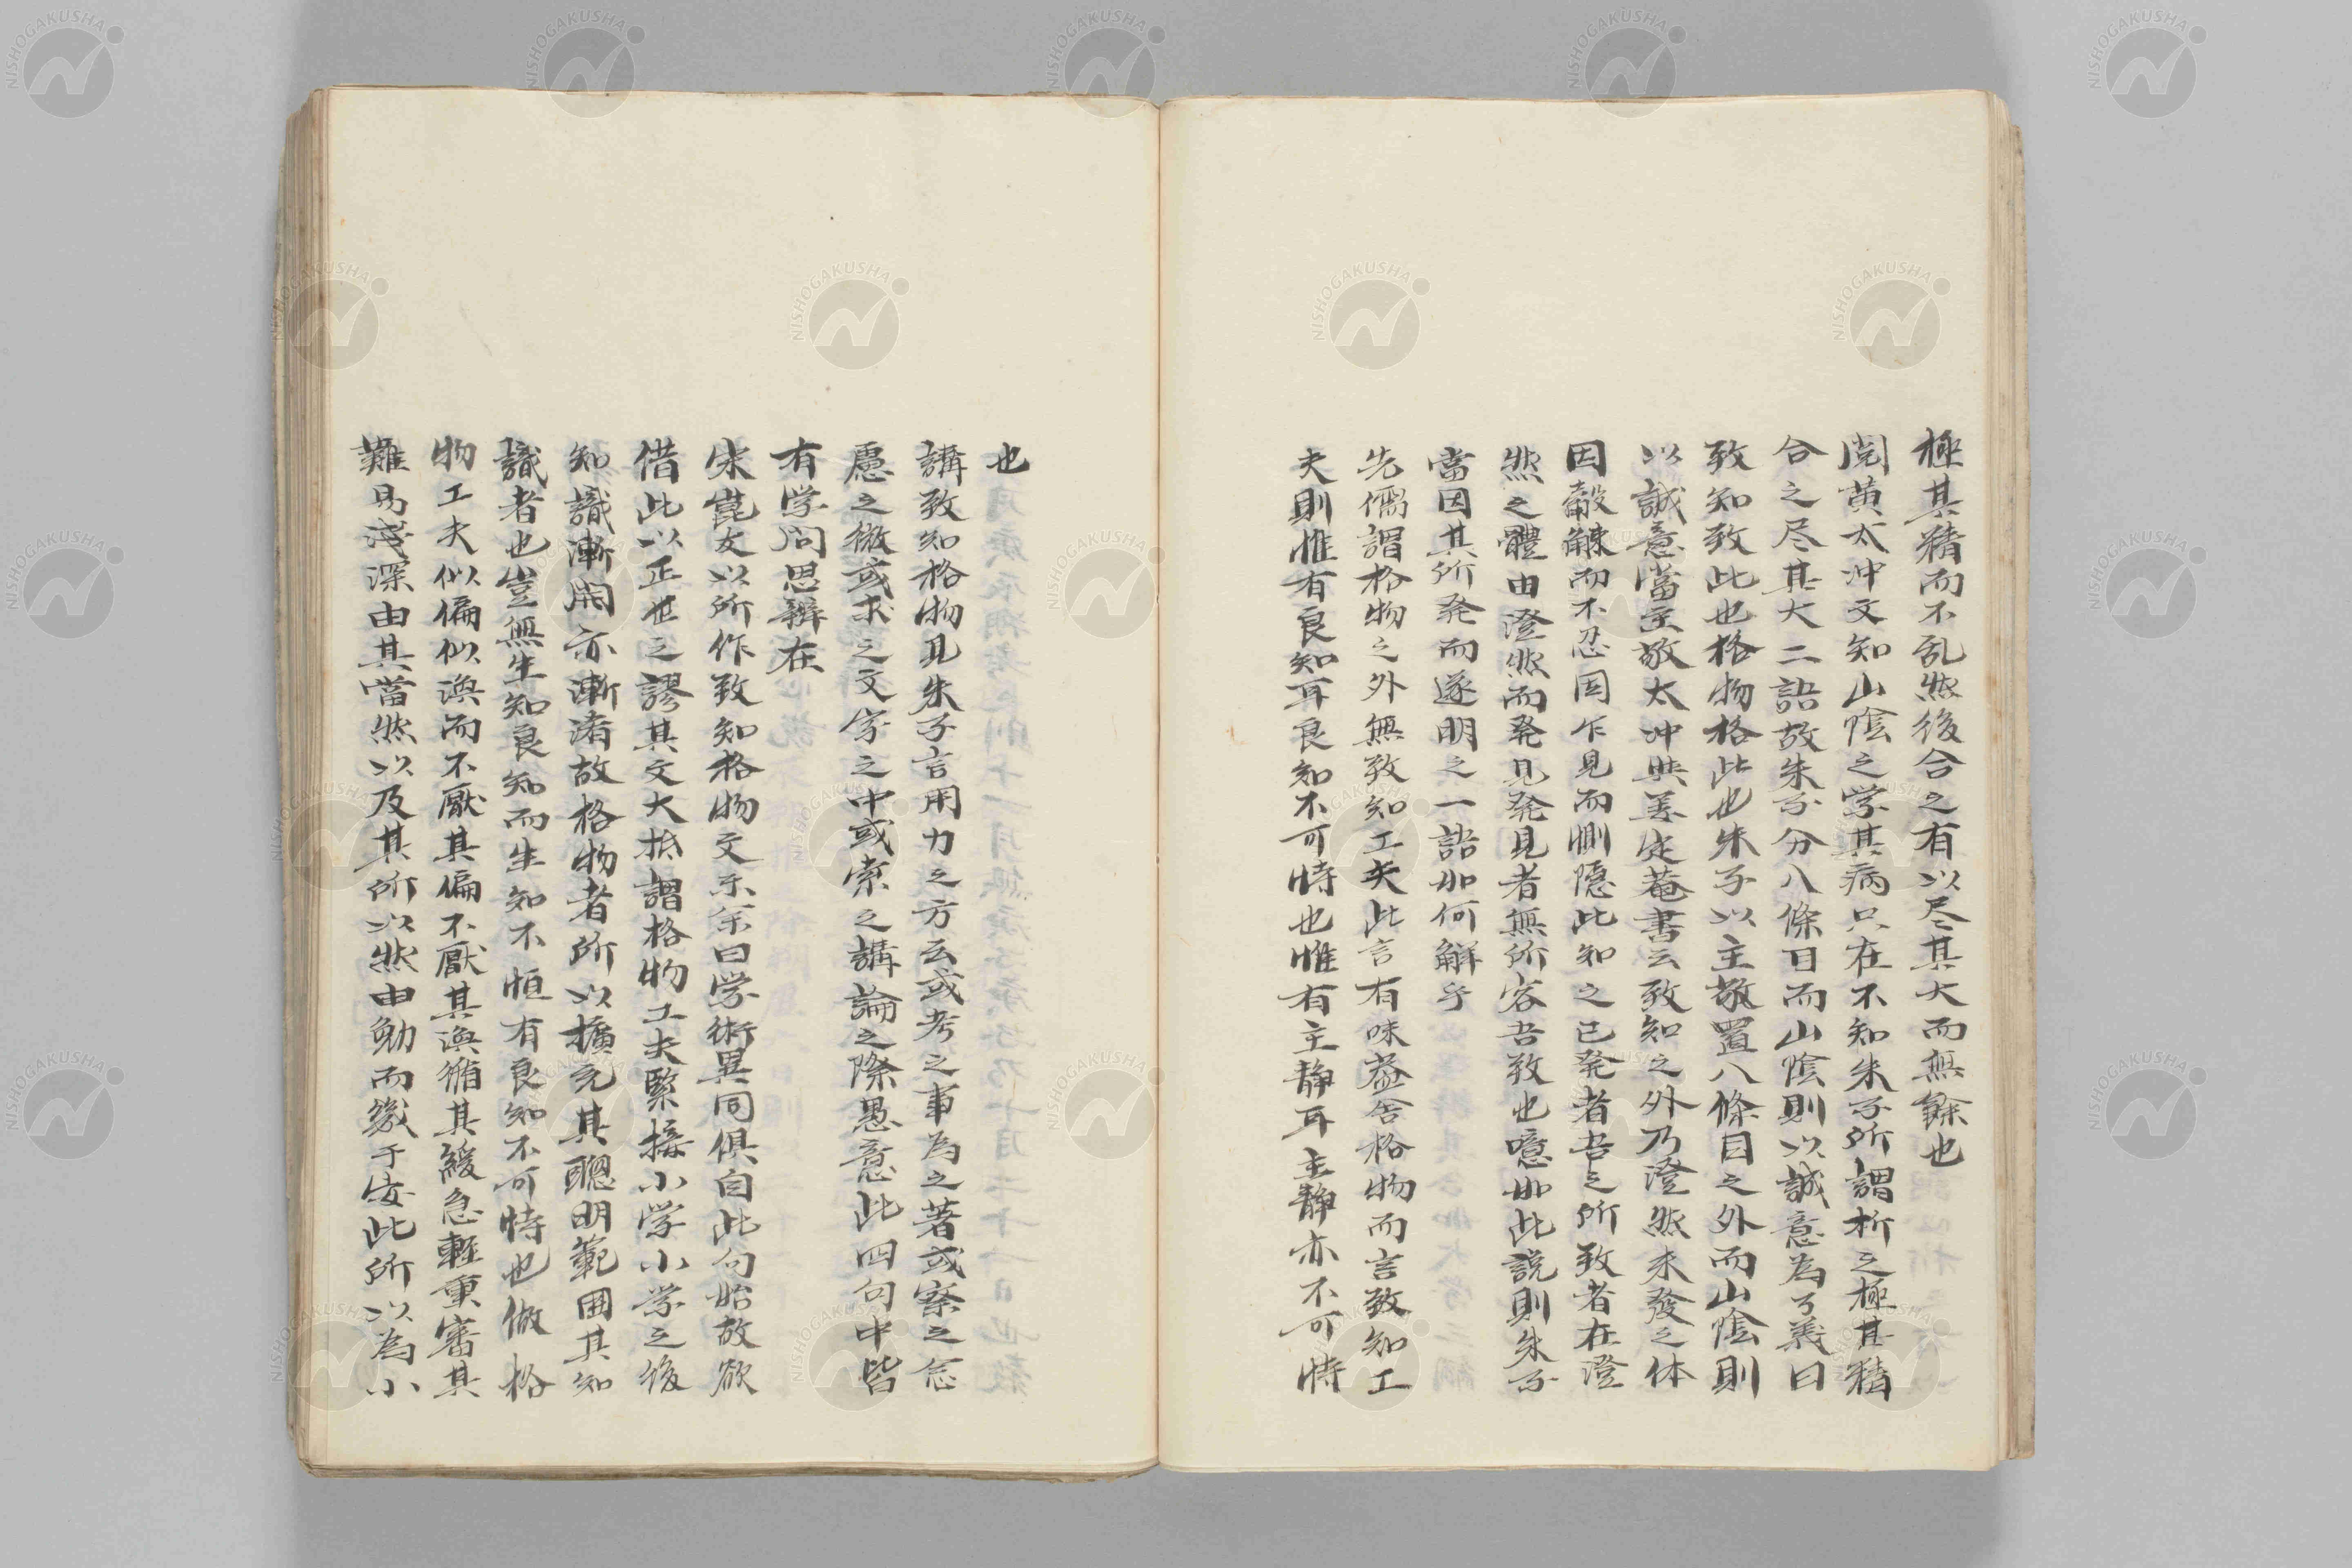 極其精而不乱然後合之有以尽其大而無餘也
閲黄太冲文知山陰之学其病只在不知朱子所謂析之極其精
合之尽其大二語故朱子分八條目而山陰則以誠意為了義曰
致知致此也格物格此也朱子以主敬置八條目之外而山陰則
以誠意當主敬太冲与姜定菴書云致知之外乃澄然未發之体
因觳觫而不忍因乍見而惻隠此知之已発者吾之所致者在澄
然之體由澄然而発見発見者無所容吾致也噫如此説則朱子
當因其所発而遂明之一語如何解乎
先儒謂格物之外無致知工夫此言有味蓋舎格物而言致知工
夫則惟有良知耳良知不可恃也惟有主静耳主静亦不可恃
也
講致知格物見朱子言用力之方云或考之事為之著或察之念
慮之微或求之文字之中或索之講論之際愚意此四句中皆
有学问思辨在
宋崑友以所作致知格物文示余曰学術異同倶自此句始故欲
借此以正世之謬其文大抵謂格物工夫緊接小学小学之後
知識漸開亦漸淆故格物者所以擴充其聰明範囲其知
識者也豈無生知良知而生知不恒有良知不可恃也做格
物工夫似偏似渙而不厭其偏不厭其渙循其緩急軽重審其
難易浅深由其當然以及其所以然由勉而幾于安此所以為小
NISHOGAKUSHA